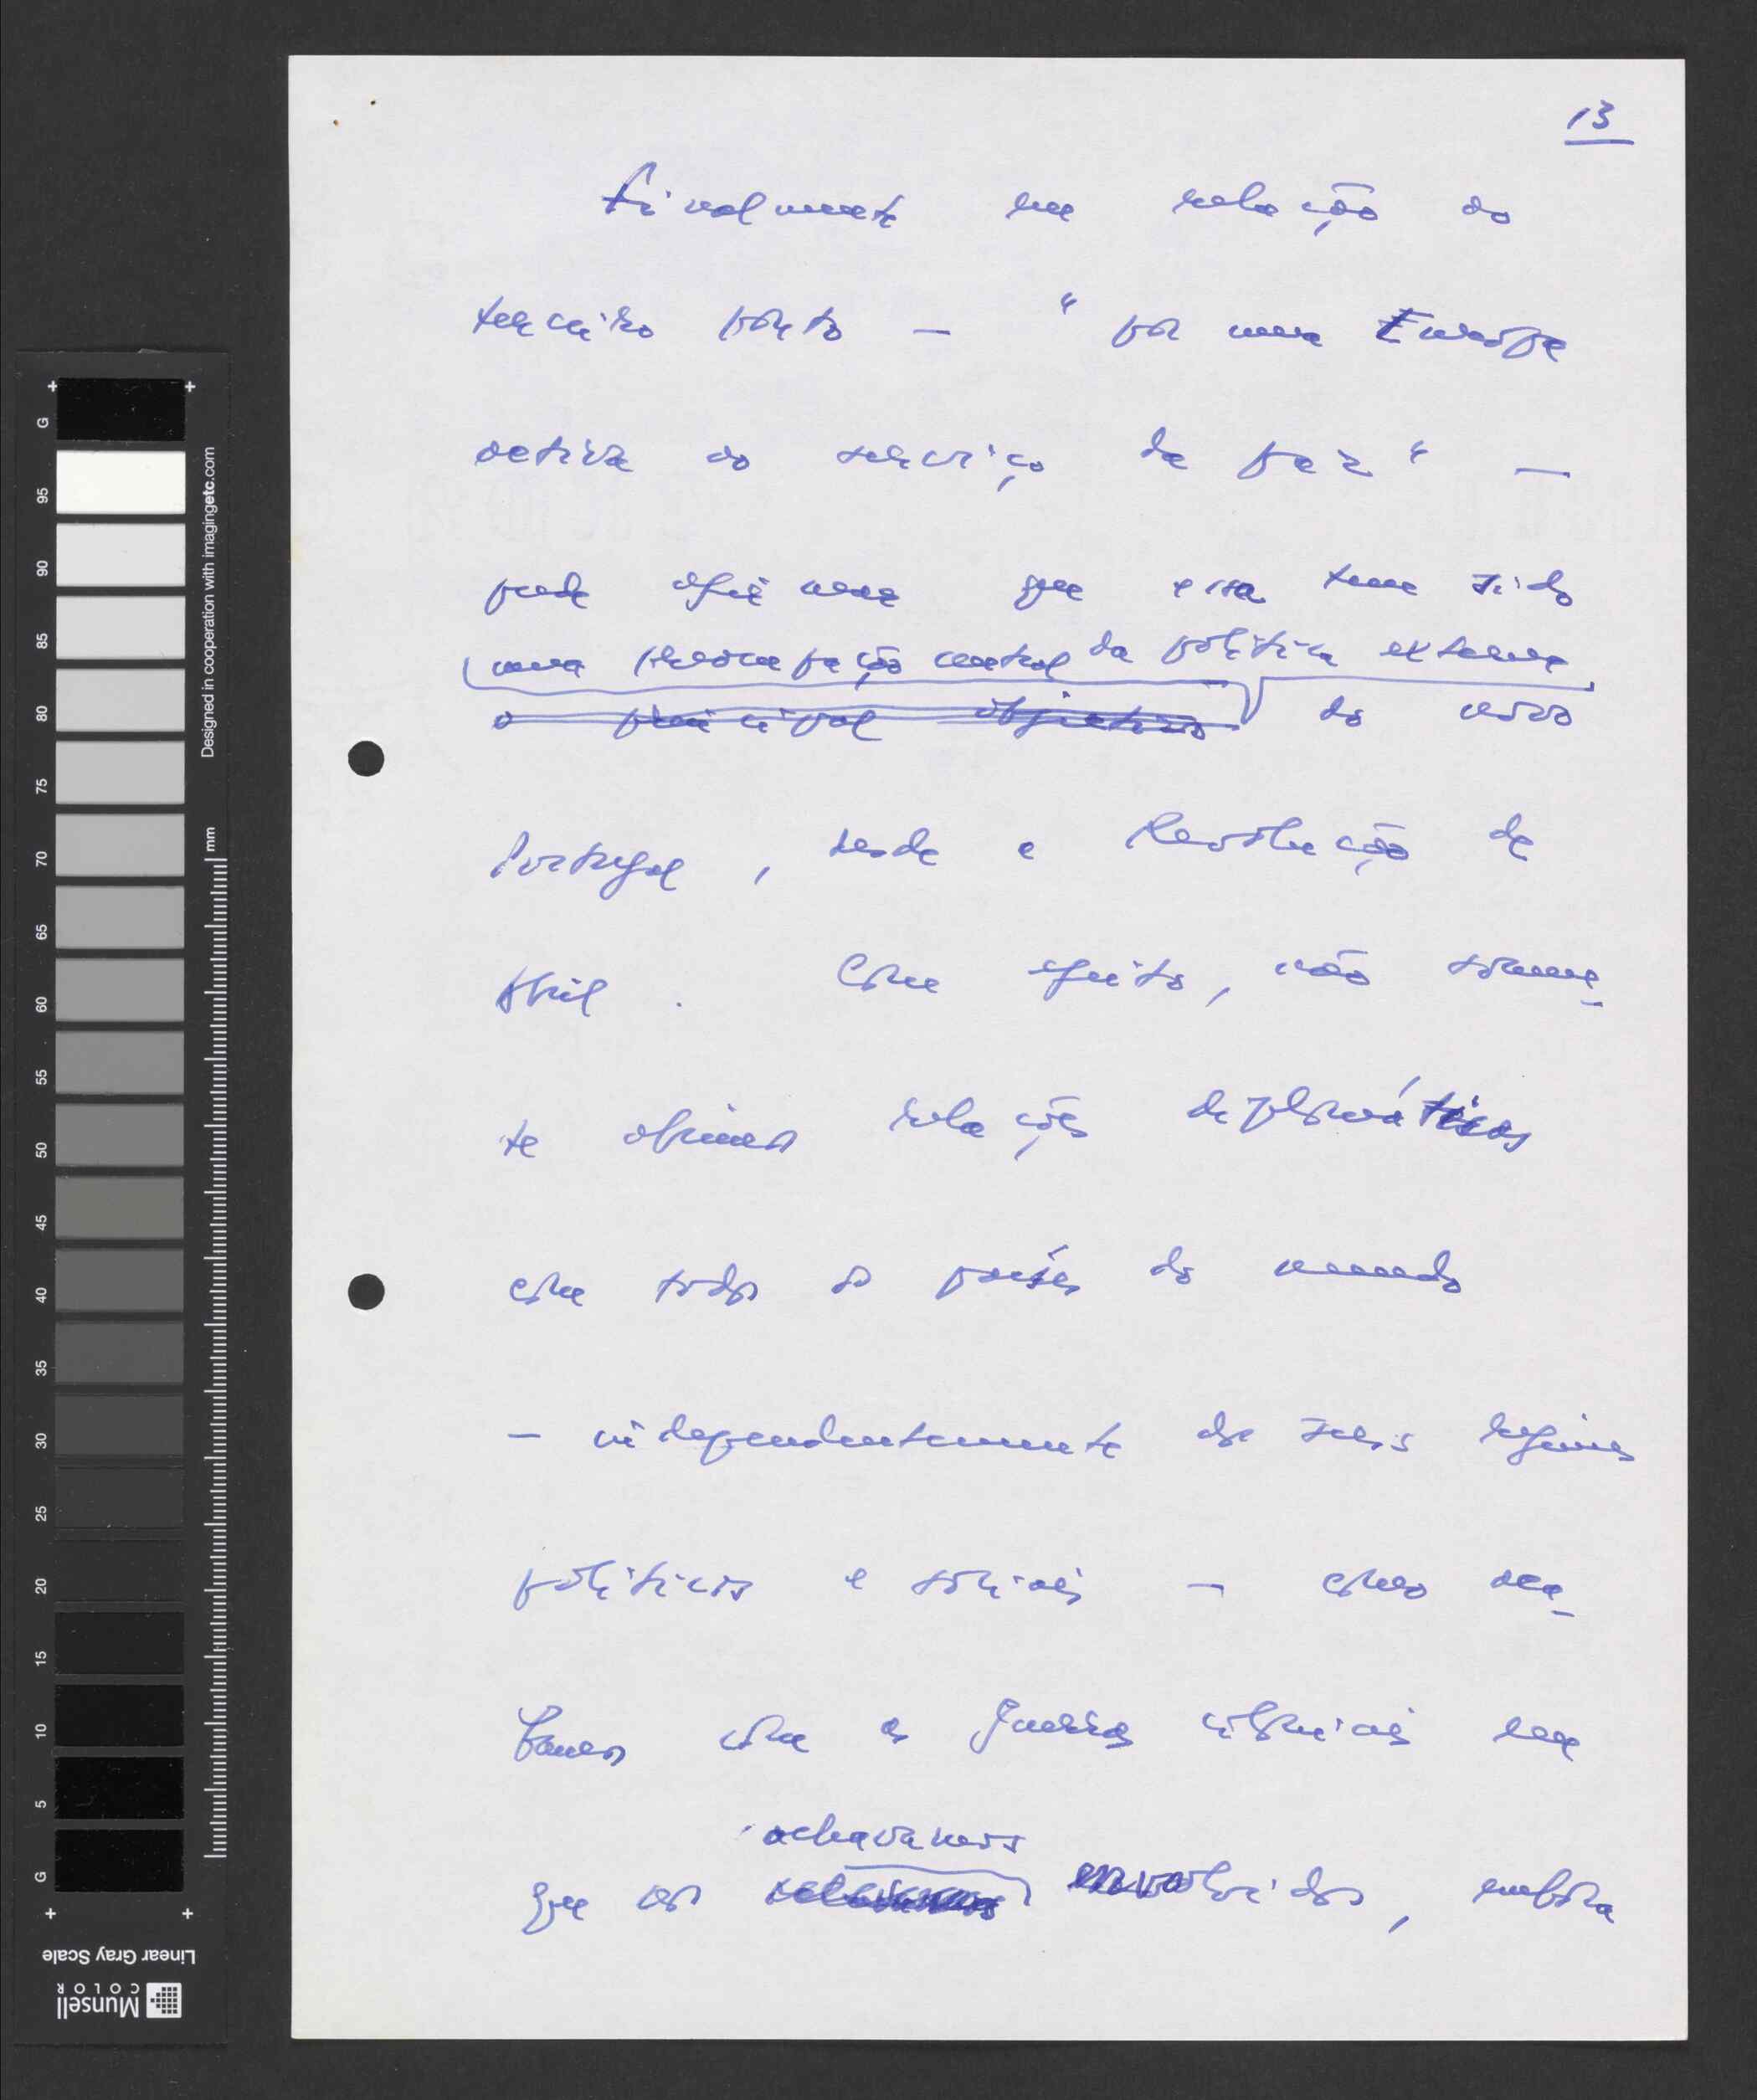 13
Finalmente em relação ao
terceiro ponto — "por uma Europa
activa ao serviço da paz" —
pode afirmar que essa tem sido
uma preocupação central da política externa
o principal objectivo do novo
Portugal, desde a Revolução de
Abril. Com efeito, não somen_
te abrimos relações diplomáticas
com todos os países do mundo
— independentemente dos seus regimes
políticos e sociais — como aca_
bamos com as guerras coloniais em
achavamos
que nos envolvidos, embora
G 95 90 85 80 75 70 65 60 55 50 45 40 35 30 25 20 15 10 5 G
Designed in cooperation with imagingetc.com
mm
Linear Gray Scale
Munsell
COLOR